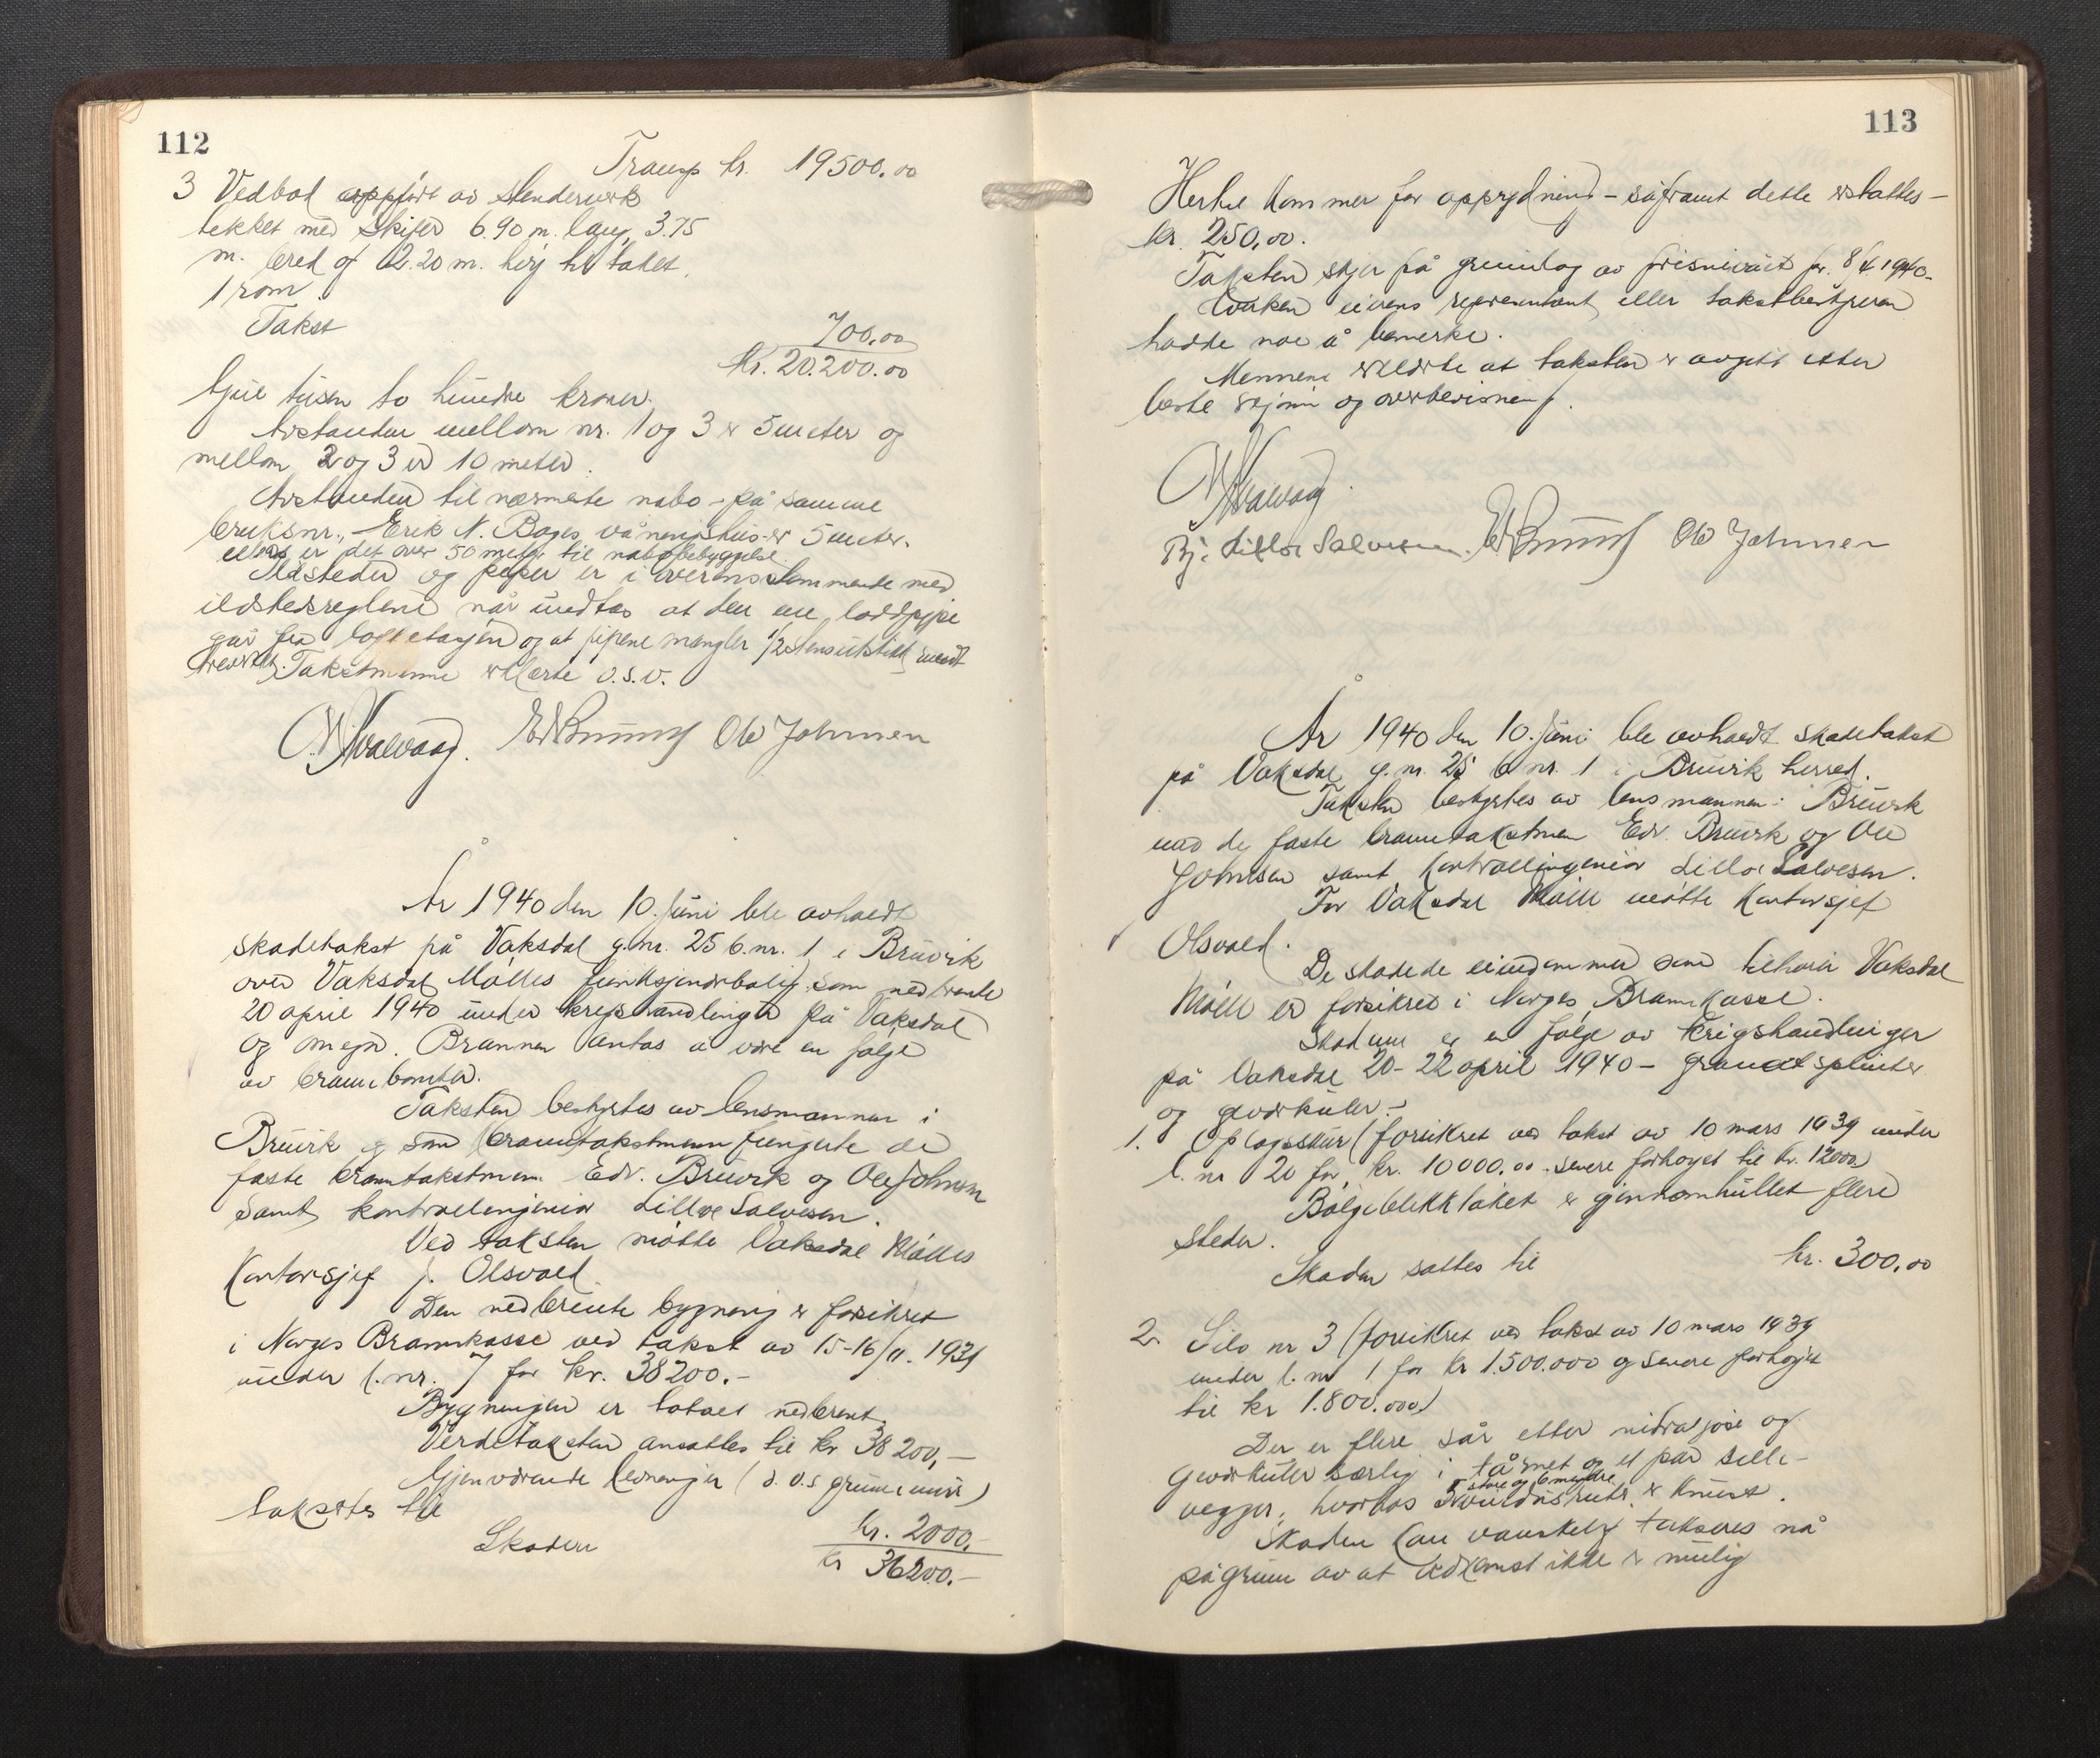 112
Transp kr. 19500.00
3 Vedbod oppført av stenderverk
tekket med skifer 6.90 m. lang, 3.75
m. bred og 2.20 m. høy til taket.
1 rom.
Takst 700.00
Kr. 20.200.00
tjue tusen to hundre kroner.
Avstanden mellom nr. 1 og 3 er 5 meter og
mellom 2 og 3 er 10 meter.
Avstanden til nærmeste nabo - på samme
bruksnr., - Erik N. Boges våningshus - er 5 meter.
ellers er det over 50 meter til nabobebyggelse.
Ildsteder og piper er i overensstemmende med
ildstedsreglene når undtas at den ene loddpipe
går fra loftetasjen og at pipene mangler 1/2 stens utstikk rundt
treverket. Takstmenne erklærte o.s.v.
Edv Bruvik Ole Johnsen
År 1940 den 10. juni ble avholdt
skadetakst på Vaksdal g.nr. 25 b.nr. 1 i Bruvik
over Vaksdal Mølles funksjonærbolig som nedbrente
20 april 1940 under krigshandlinger på Vaksdal
og omegn. Brannen antas å være en følge
av brannbomber.
Taksten bestyrtes av lensmannen i
Bruvik og som branntakstmenn fungerte de
faste branntakstmenn Edv. Bruvik og Ole Johnsen
samt kontrollingeniør Lilloe Salvesen.
Ved taksten møtte Vaksdal Mølles
Kontorsjef J. Olsvold.
Den nedbrente bygning er forsikret
i Norges Brannkasse ved takst av 15-16/11. 1931
under l.nr. 7 for kr. 38200.-
Bygningen er totalt nedbrent.
Verditaksten ansattes til kr 38200,-
Gjenværende levninger (d.v.s grunnmur)
takseres til kr. 2000.-
Skaden kr 36200.-
113
Hertil kommer for opprydning - såframt dette erstattes -
kr. 250,00.
Taksten skjer på grunnlag av prisnivået pr. 8/4 1940.
Hverken eierens representant eller takstbestyreren
hadde noe å bemerke.
Mennene erklærte at taksten er avgitt etter
beste skjønn og overbevisning.
Bj. Lilloe Salvesen. Edv Bruvik Ole Johnsen
År 1940 den 10. juni ble avholdt skadetakst
på Vaksdal g.nr. 25 b.nr. 1 i Bruvik herred.
Taksten bestyrtes av lensmannen i Bruvik
med de faste branntakstmen Edv. Bruvik og Ole
Johnsen samt kontrollingeniør Lilloe Salvesen.
For Vaksdal Mølle møtte Kontorsjef
Olsvold.
De skadede eiendommer som tilhører Vaksdal
Mølle er forsikret i Norges Brannkasse.
Skadene er en følge av krigshandlinger
på Vaksdal 20-22 april 1940 - granatsplinter
og geværkuler -
1. Oplagsskur (forsikret ved takst av 10 mars 1939 under
l. nr 20 for kr. 10000.00 - senere forhøyet til kr. 12000)
Bølgeblikktaket er gjennomhullet flere
steder.
Skaden sattes til kr. 300.00
2. Silo nr 3 (forsikret ved takst av 10 mars 1939
under l. nr 1 for kr 1.500.000 og senere forhøyet
til kr 1.800.000)
Der er flere sår etter mitraljøse og
geværkuler særlig i tårnet og et par selle-
vegger, hvorhos 5 store og 6 mindre vindusruter er knust.
Skaden kan vanskelig takseres nå
på grunn av at adkomst ikke er mulig